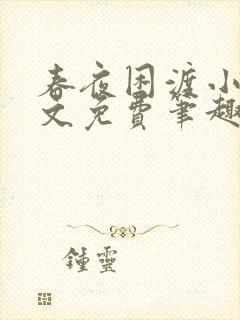 春夜困渡小
文免費筆趣
鍾靈